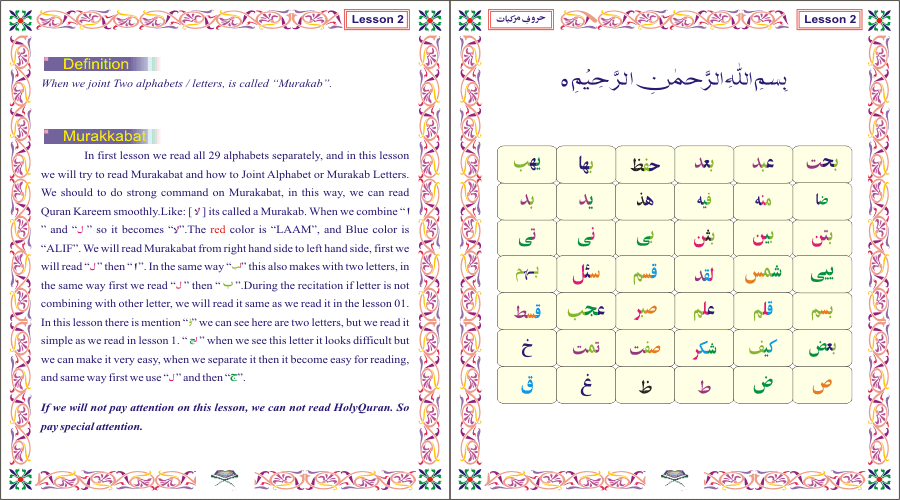 Lesson 2
Definition
When we joint Two alphabets / letters, is called “Murakab”.
Murakkabat
In first lesson we read all 29 alphabets separately, and in this lesson
we will try to read Murakabat and how to Joint Alphabet or Murakab Letters.
We should to do strong command on Murakabat, in this way, we can read
Quran Kareem smoothly.Like: [ لا ] its called a Murakab. When we combine “ا
” and “ل ” so it becomes “لا”.The red color is “LAAM”, and Blue color is
“ALIF”. We will read Murakabat from right hand side to left hand side, first we
will read “ل” then “ا”. In the same way “لب” this also makes with two letters, in
the same way first we read “ل ” then “ ب ”.During the recitation if letter is not
combining with other letter, we will read it same as we read it in the lesson 01.
In this lesson there is mention “” we can see here are two letters, but we read it
simple as we read in lesson 1. “ لج ” when we see this letter it looks difficult but
we can make it very easy, when we separate it then it become easy for reading,
and same way first we use “ل” and then “ج”.
If we will not pay attention on this lesson, we can not read HolyQuran. So
pay special attention.
حروفِ مرکبات
Lesson 2
بِسْمِ اللّٰهِ الرَّحْمٰنِ الرَّحِيْمِ ٥
بحت عبد بعد حفظ بها يهب
ضا منه فيه هذ يد بد
بتن بين بثن بى نى تى
يبى شمس لقد قسم سئل بهم
بسم قلم علم صبر عجب قسط
بعض كيف شكر صفت تمت خ
ص ض ط ظ غ ق